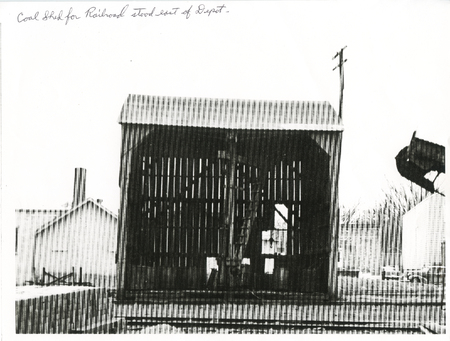 Coal Shed for Railroad stood east of Depot.